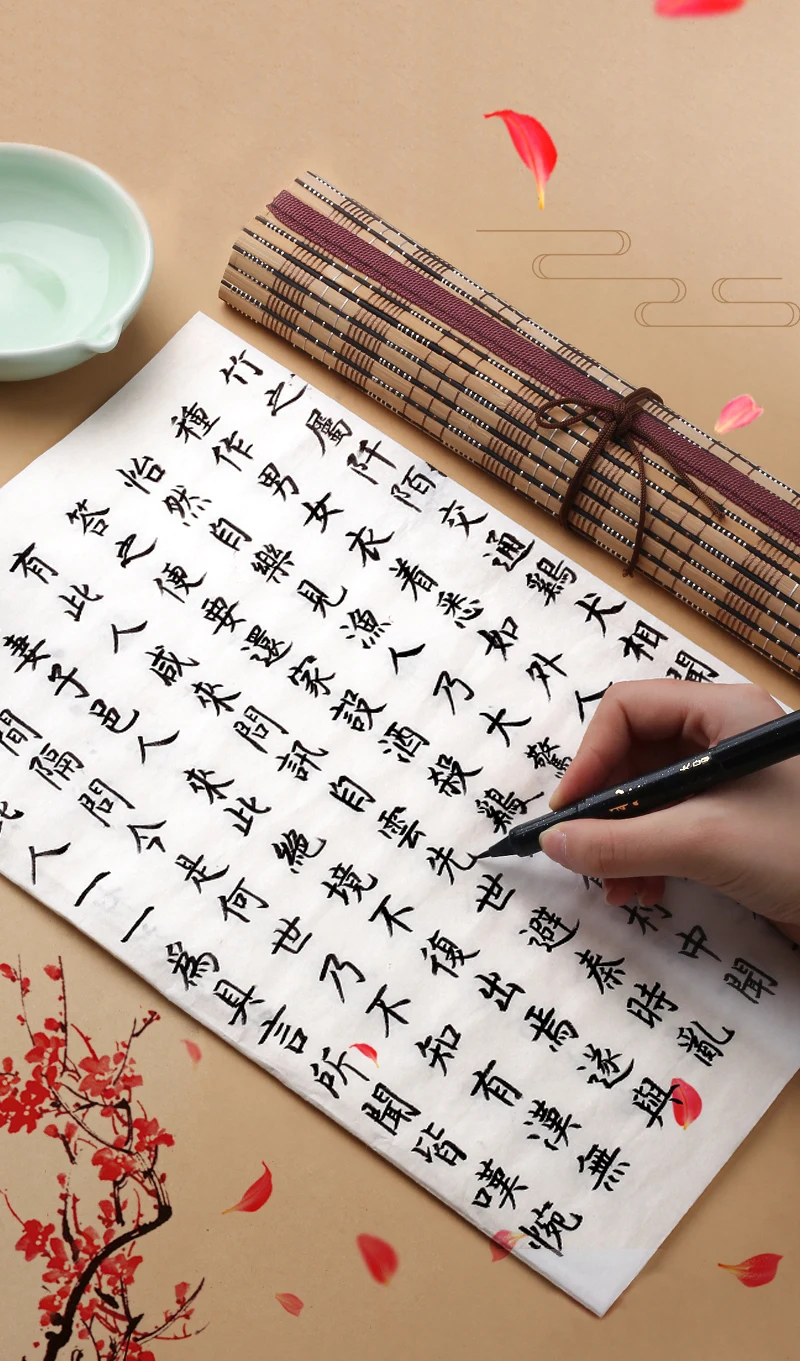 竹之屬阡陌交通鷄犬相聞
種作男女衣着悉如外人
怡然自樂見漁人乃大驚
答之便要還家設酒殺鷄村中聞
有此人咸來問訊自雲先世避秦時亂
妻子邑人來此絕境不復出焉遂與
間隔問今是何世乃不知有漢無
此人一一為具言所聞皆嘆惋